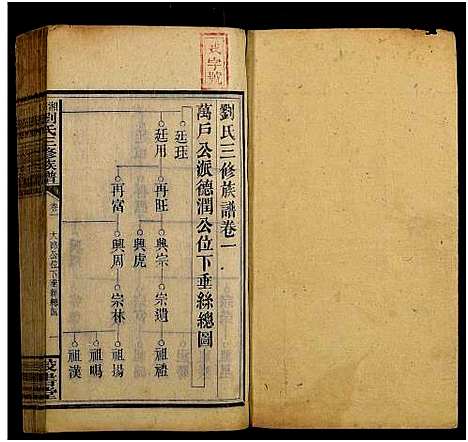 戊字號
劉氏三修族譜卷一
萬戶公派德潤公位下垂絲總圖
廷珏
廷用
再旺
再富
興宗
興虎
興周
宗遺
宗林
祖禮
祖揚
祖鳴
祖漢
劉氏三修族譜
卷一
公位下垂絲總圖
一